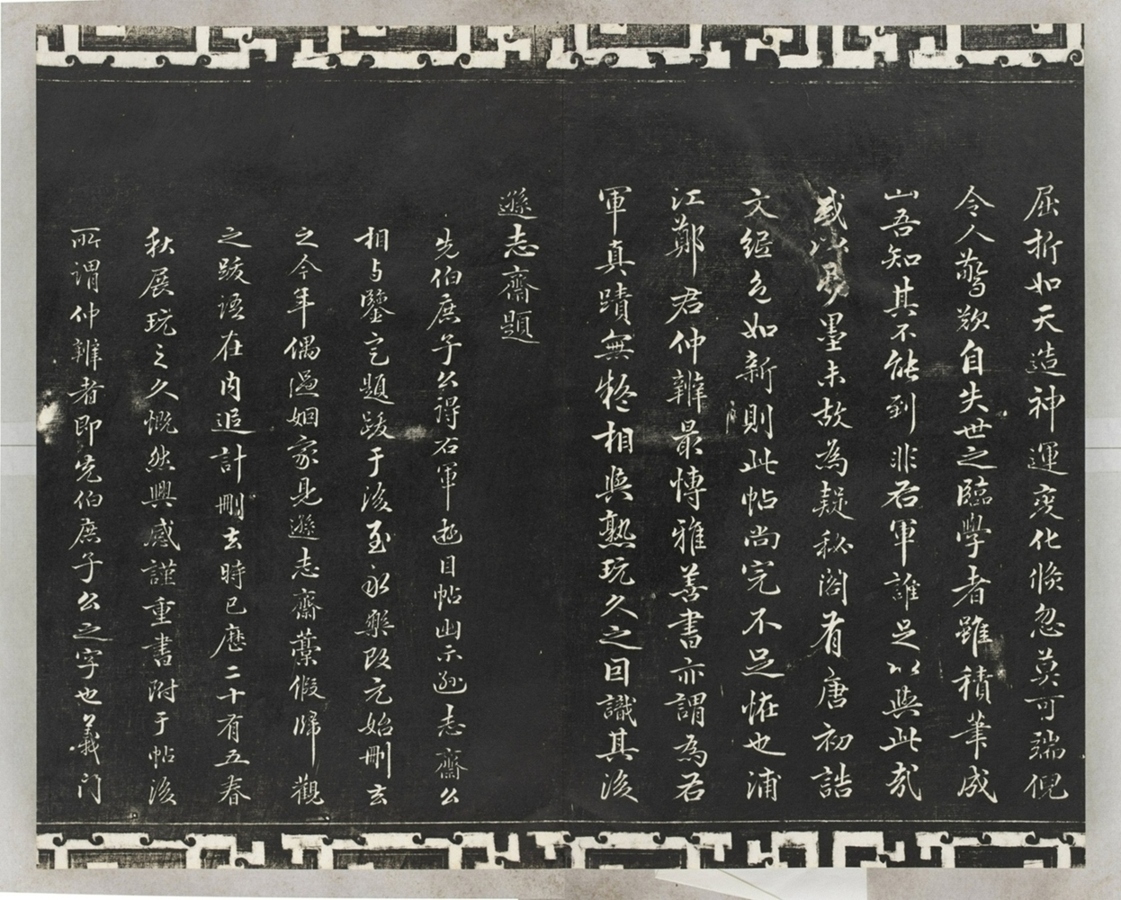 屈折如天造神運变化倐忽莫可端倪
令人驚歎自失世之臨學者雖積筆成
山吾知其不能到非右軍誰足以與此哉
或以為墨未故為疑秘閣有唐初誥
文絙色如新則此帖尚完不足怪也浦
江鄭君仲辨最博雅善書亦謂為右
軍真蹟無疑相與熟玩久之因識其後
遜志齋題
先伯庶子公得右軍遊目帖出示遜志齋公
相与鑒定題跋于後至永樂改元始刪去
之今年偶過姻家見遜志齋藁假歸觀
之跋語在内追計刪去時已歷二十有五春
秋展玩之久慨然興感謹重書附于帖後
所謂仲辨者即先伯庶子公之字也義门